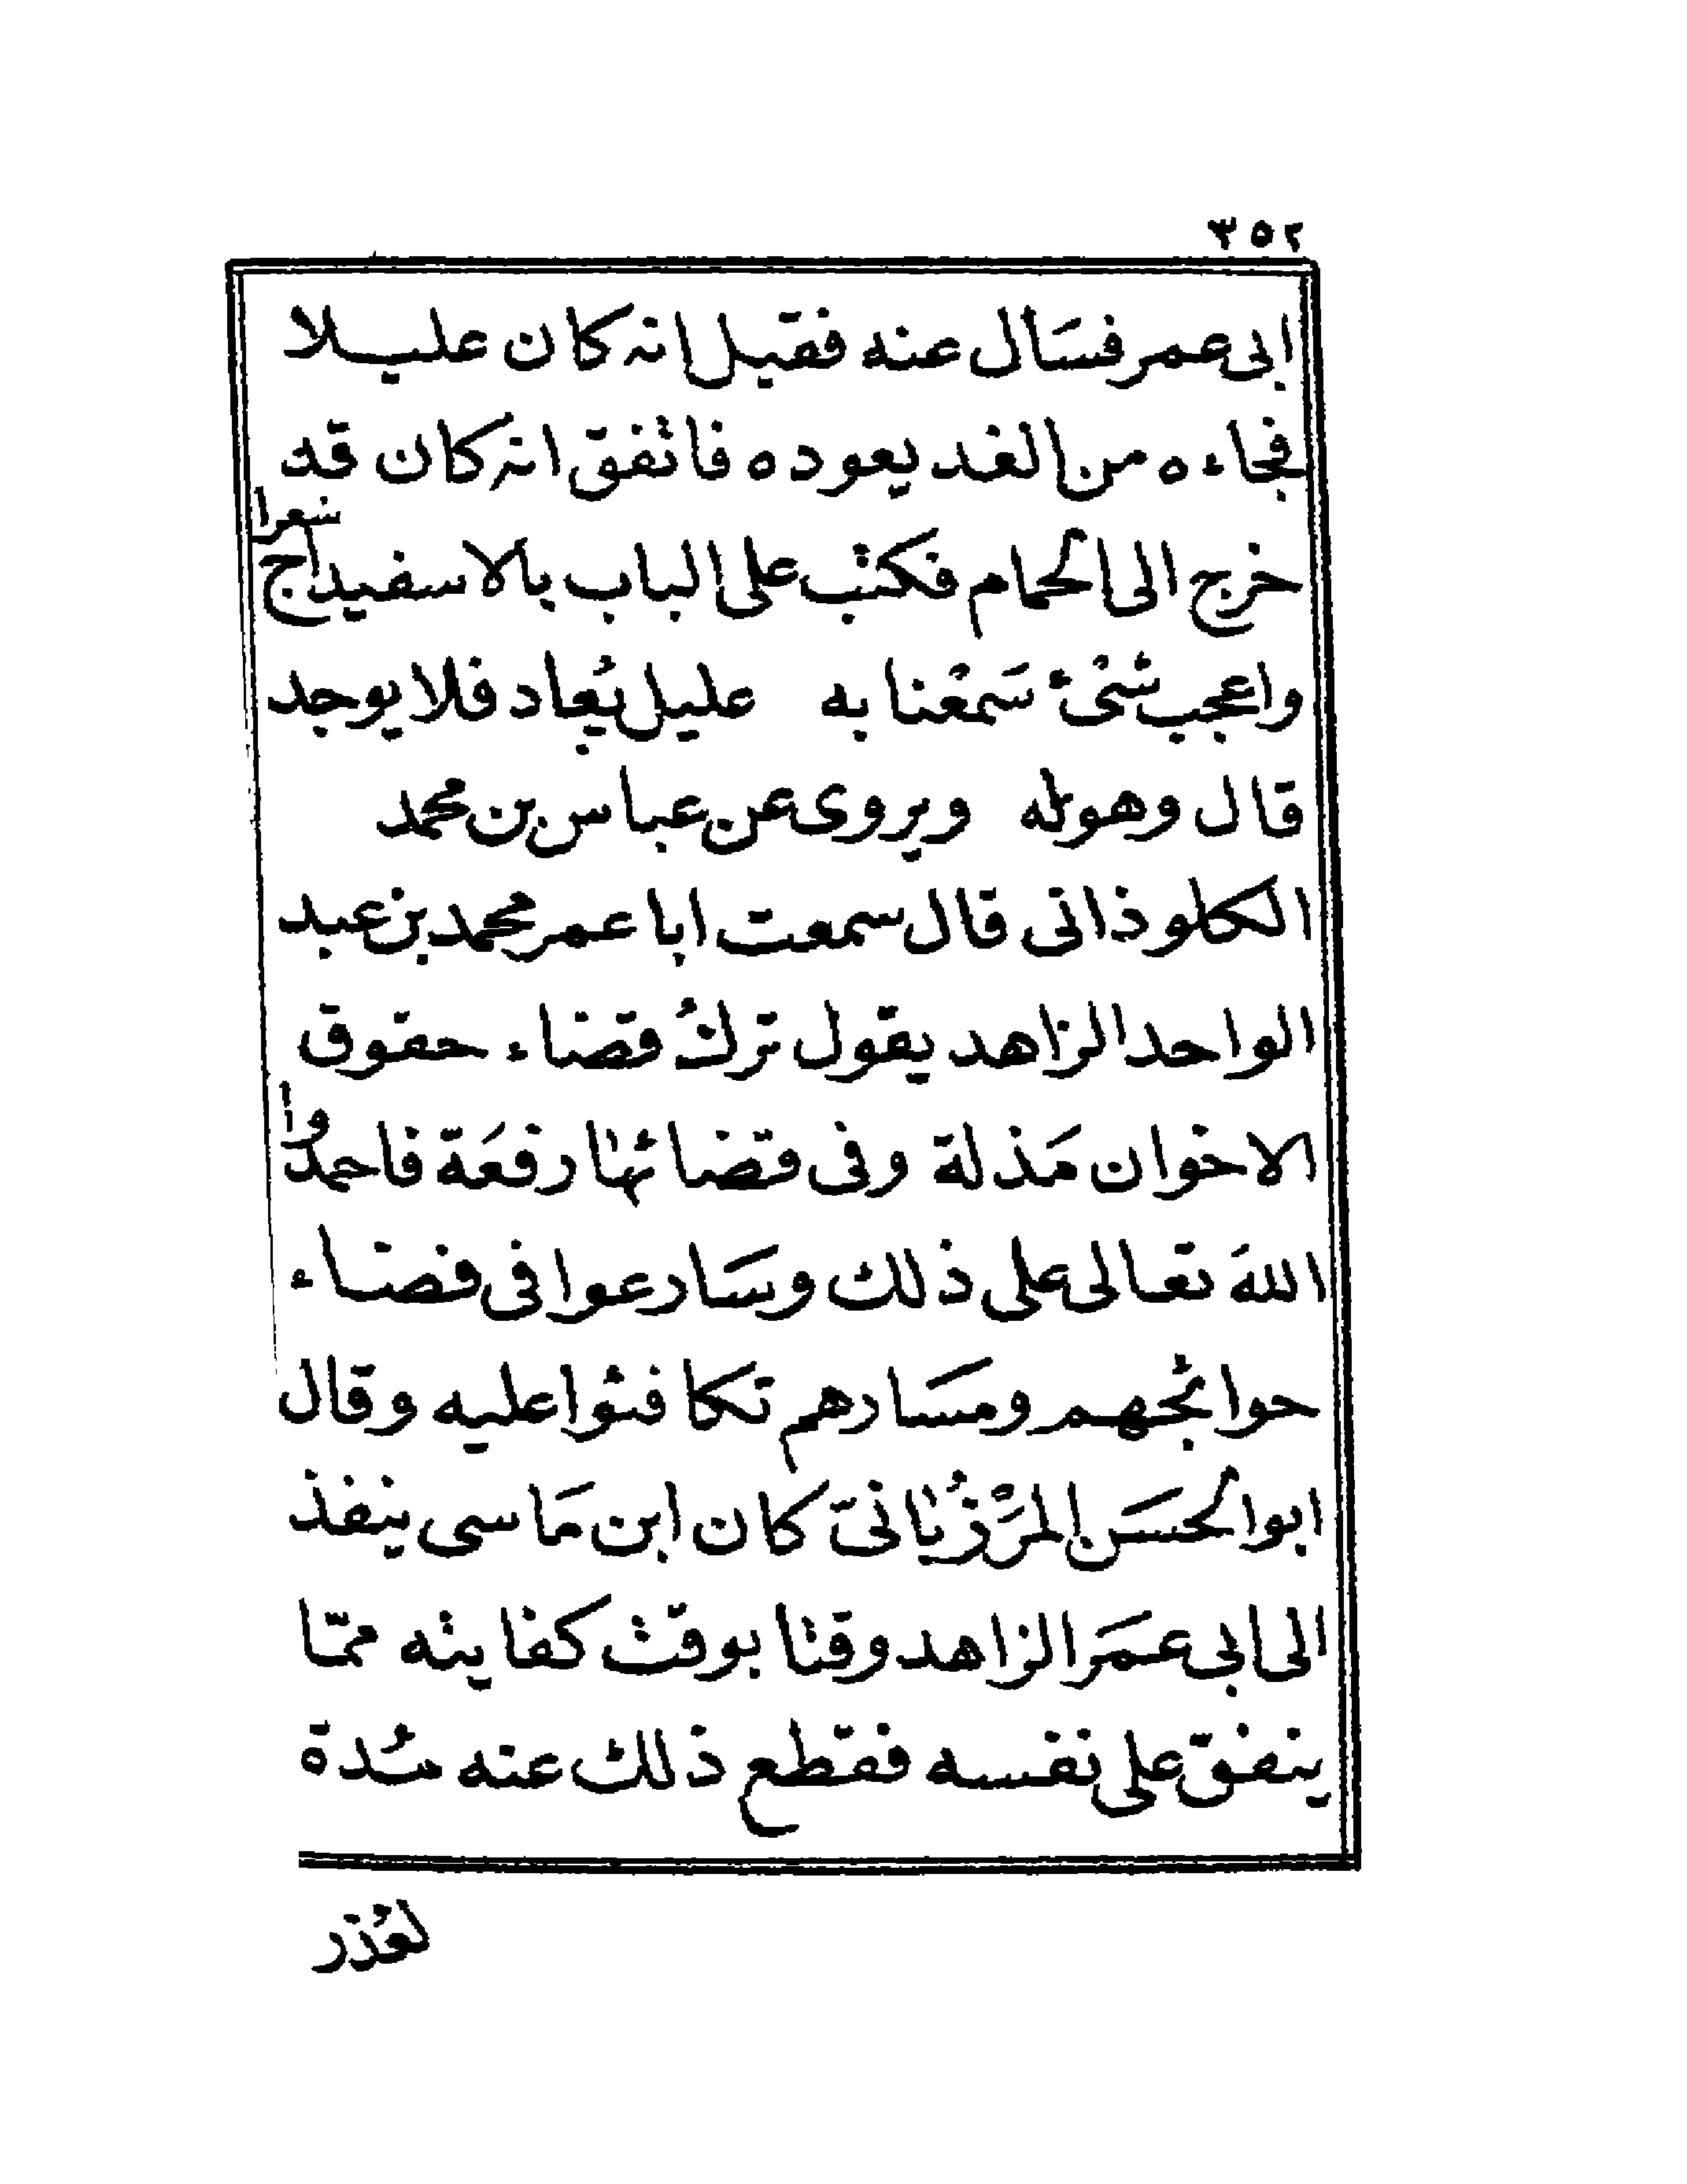 ٣٥٢
ابى عمر فسَال عنه فقيل انه كان عليلا
فجاءه من الغد يعوده فاتفق انه كان قد
خرج الى الحمام فكتب على الباب بالاسفيداج شعرا
واعجب شئ سَمعْنا به عليل يُعاد فلا يوجد
قال وهو له ويروى عن عباس بن محمد
الكلوذانى قال سمعت ابا عمر محمد بن عبد
الواحد الزاهد يقول تركُ قضاء حقوق
الاخوان مَذلة وفى قضائها رفعَة فاحمدوا
اللهَ تعالى على ذلك وسَارعوا فى قضاء
حوائجهم ومسَارهم تكافئوا عليه وقال
ابوالحسَن المَرْزُبانىّ كان ابن مَاسى ينفذ
الى ابى عمَر الزاهد وقتا بوقت كفايته ممّا
ينفق على نفسه فقطع ذلك عنه مُدة
لعُذر